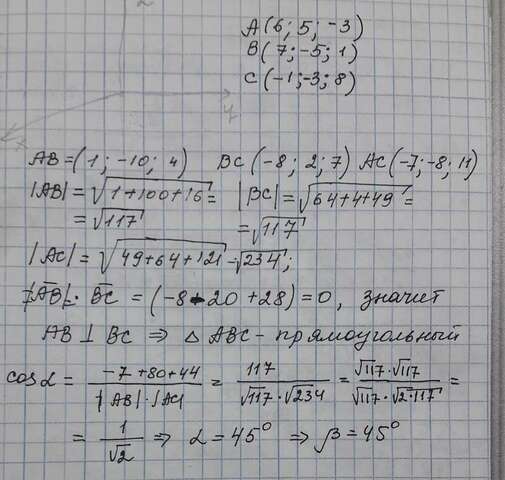 A(6; 5; -3)
B(7; -5; 1)
C(-1; -3; 8)
AB=(1; -10; 4) BC(-8; 2; 7) AC(-7; -8; 11)
|AB|=√1+100+16= |BC|=√64+4+49=
=√117 =√117
|AC|=√49+64+121=√234;
|AB|· BC = (-8-20+28)=0, значит
AB ⊥ BC ⇒ △ ABC - прямоугольный
cos α = -7+80+44 / |AB|·|AC| = 117 / √117·√234 = √117·√117 / √117·√2·117 =
= 1/√2 ⇒ α=45° ⇒ β=45°